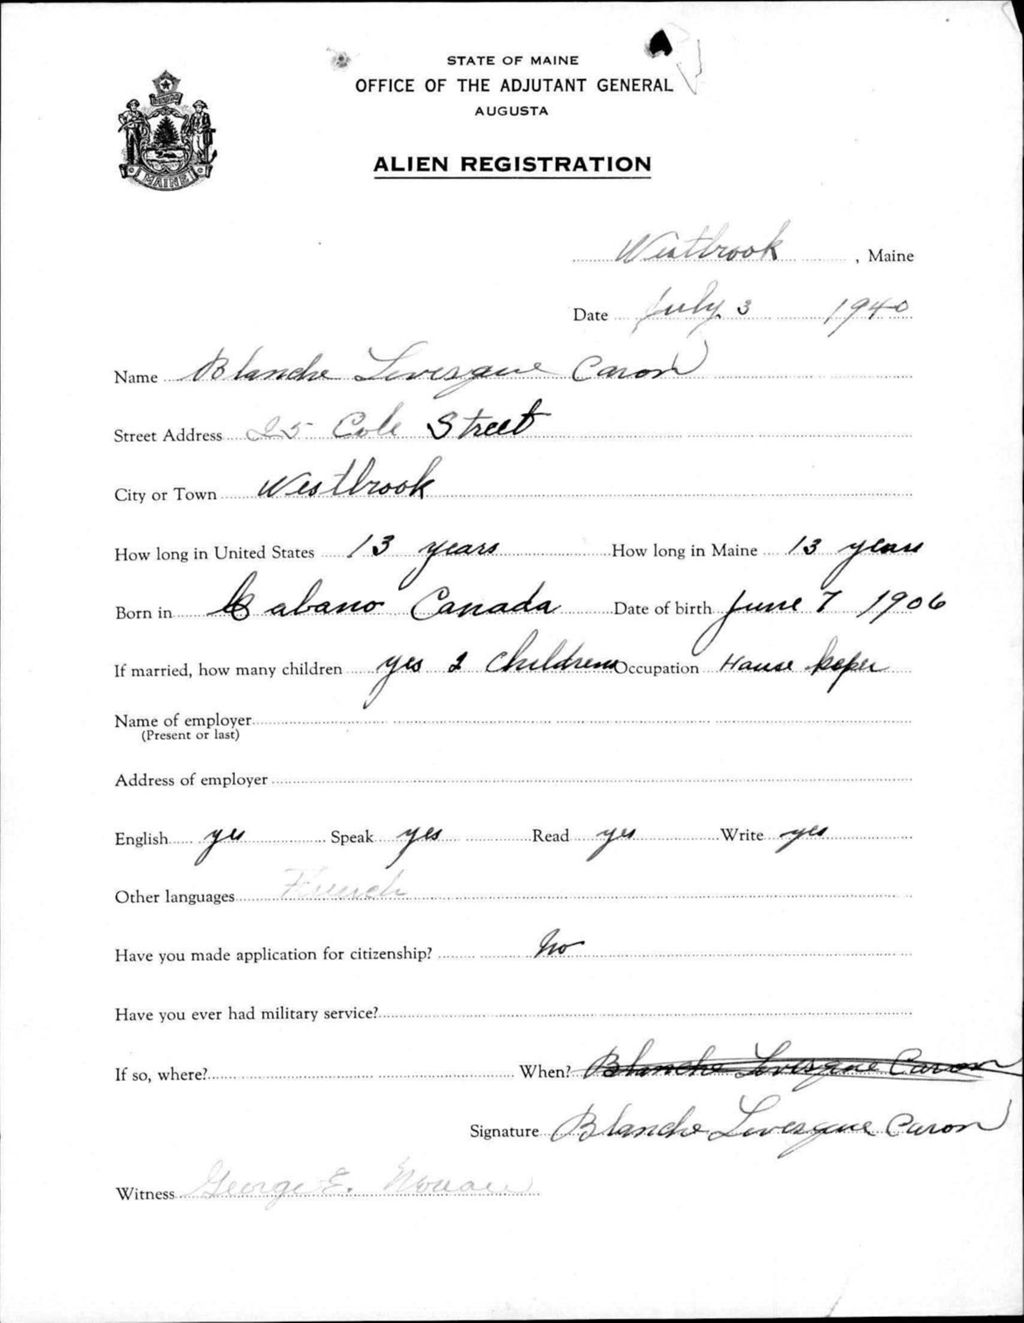 STATE OF MAINE
OFFICE OF THE ADJUTANT GENERAL
AUGUSTA
MAINE
ALIEN REGISTRATION
Westbrook, Maine
Date July 3 1940
Name Blanche Levesque Caron
Street Address 25 Cole Street
City or Town Westbrook
How long in United States 13 years How long in Maine 13 years
Born in Cabano Canada Date of birth June 7 1906
If married, how many children yes 2 childrens Occupation House keper
Name of employer
(Present or last)
Address of employer
English yes Speak yes Read yes Write yes
Other languages French
Have you made application for citizenship? No
Have you ever had military service?
If so, where? When? Blanche Levesque Caron
Signature Blanche Levesque Caron
Witness George E.